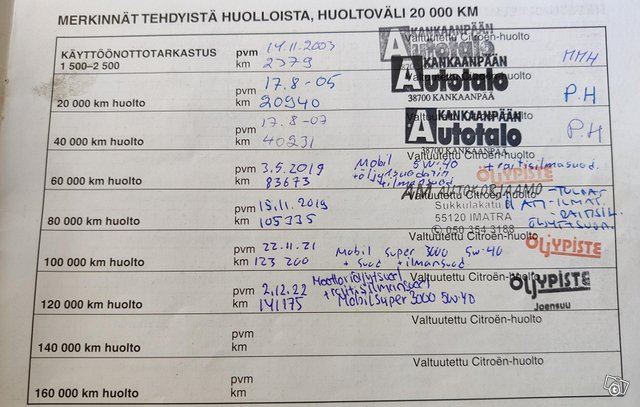 MERKINNÄT TEHDYISTÄ HUOLLOISTA, HUOLTOVÄLI 20 000 KM
KÄYTTÖÖNOTTOTARKASTUS
1 500–2 500
pvm 14.11.2003
km 2379
Valtuutettu Citroën-huolto
KANKAANPÄÄN
Autotalo
MMH
20 000 km huolto
pvm 17.8-05
km 20940
KANKAANPÄÄN
Autotalo
38700 KANKAANPÄÄ
P.H
40 000 km huolto
pvm 17.8-07
km 40231
Valtuutettu Citroën-huolto
KANKAANPÄÄN
Autotalo
38700 KANKAANPÄÄ
P.H
60 000 km huolto
pvm 3.5.2019
km 83673
Valtuutettu Citroën-huolto
Mobil 5W-40
+ raitisilmasuod.
ÖLJYPISTE
80 000 km huolto
pvm
km 105335
Valtuutettu Citroën-huolto
AM AUTOKORJAAMO
Sukkulakatu
55120 IMATRA
050 354 3188
100 000 km huolto
pvm 22.11.21
km 123 200
Valtuutettu Citroën-huolto
Mobil Super 3000 5W-40
+ suod + ilmansuod
ÖLJYPISTE
120 000 km huolto
pvm 2.12.22
km 141175
Valtuutettu Citroën-huolto
Mobil Super 3000 5W-40
ÖLJYPISTE
Joensuu
140 000 km huolto
pvm
km
Valtuutettu Citroën-huolto
160 000 km huolto
pvm
km
Valtuutettu Citroën-huolto